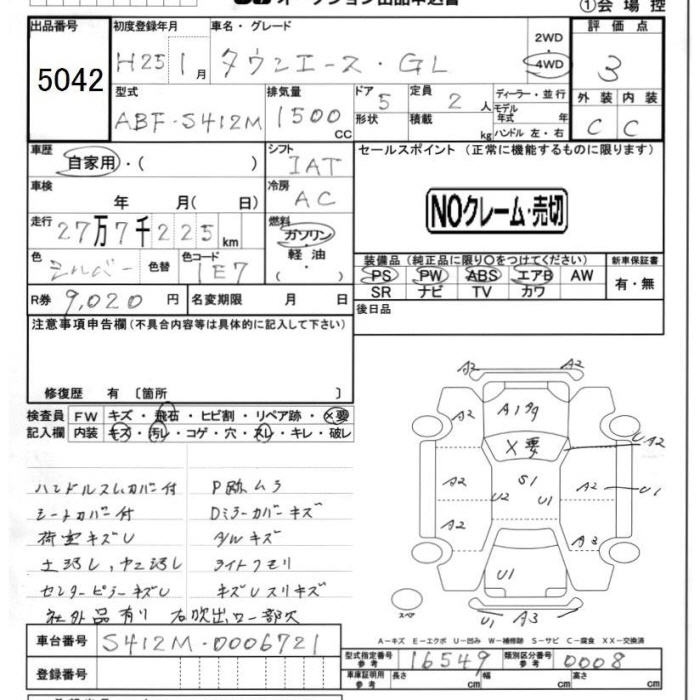 オークション出品申込書
①会場控
出品番号 初度登録年月 車名・グレード 評価点
5042 H25 1月 タウンエース・GL 2WD 4WD 3
型式 排気量 ドア 定員 ディーラー・並行 外装 内装
ABF-S412M 1500 CC 5 2人 モデル年式 年 C C
形状 積載 kg ハンドル 左・右
車歴 シフト セールスポイント (正常に機能するものに限ります)
自家用・( ) IAT
車検 冷房
年 月( 日) AC
NOクレーム・売切
走行 27万7千225km 燃料
ガソリン・軽油・( )
色 シルバー 色替 色コード 1E7
装備品 (純正品に限り○をつけてください) 新車保証書
PS PW ABS エアB AW 有・無
SR ナビ TV カワ
R券 9,020円 名変期限 月 日
後日品
注意事項申告欄 (不具合内容等は具体的に記入して下さい)
修復歴 有 〔箇所 〕
検査員 FW キズ・飛石・ヒビ割・リペア跡・×要
記入欄 内装 キズ・汚レ・コゲ・穴・スレ・キレ・破レ
A2 A2
A2 A19 A2
×要 UA2
A2 S1 A2 U1
U2 U1
A2 A3
U1
U1 A3
スペア
ハンドルスレカバー付 P跡ムラ
シートカバー付 Dミラーカバーキズ
荷室キズU A/Wキズ
土汚レ、ヤニ汚レ ライトクモリ
センターピラーキズU キズUスリキズ
社外品有り 右吹出口一部欠
A−キズ E−エクボ U−凹み W−補修跡 S−サビ C−腐食 XX−交換済
車台番号 S412M-0006721
型式指定番号 参考 16549 類別区分番号 参考 0008
登録番号
車庫証明用 参考 長さ cm 幅 cm 高さ cm